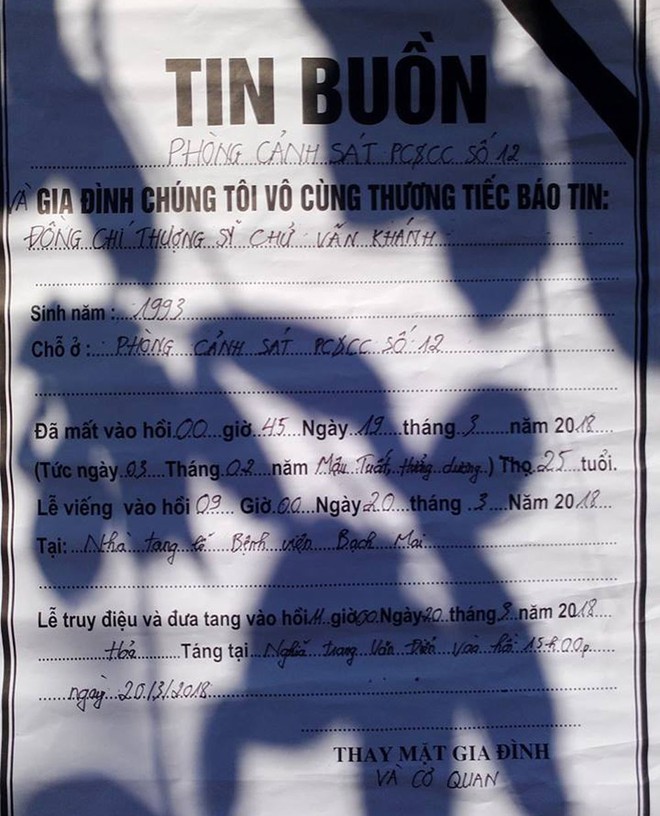 TIN BUỒN
PHÒNG CẢNH SÁT PC&CC SỐ 12
VÀ GIA ĐÌNH CHÚNG TÔI VÔ CÙNG THƯƠNG TIẾC BÁO TIN:
ĐỒNG CHÍ THƯỢNG SĨ CHỬ VĂN KHÁNH
Sinh năm : 1993
Chỗ ở : PHÒNG CẢNH SÁT PC&CC SỐ 12
Đã mất vào hồi 00 giờ 45 Ngày 19 tháng 3 năm 2018
(Tức ngày 03 Tháng 02 năm Mậu Tuất, hưởng dương) Thọ 25 tuổi.
Lễ viếng vào hồi 09 Giờ 00 Ngày 20 tháng 3 Năm 2018
Tại: Nhà tang lễ Bệnh viện Bạch Mai
Lễ truy điệu và đưa tang vào hồi 11 giờ 00 Ngày 20 tháng 3 năm 2018
Hoả Táng tại Nghĩa trang Văn Điển vào hồi 15h00p
ngày 20/3/2018
THAY MẶT GIA ĐÌNH
VÀ CƠ QUAN